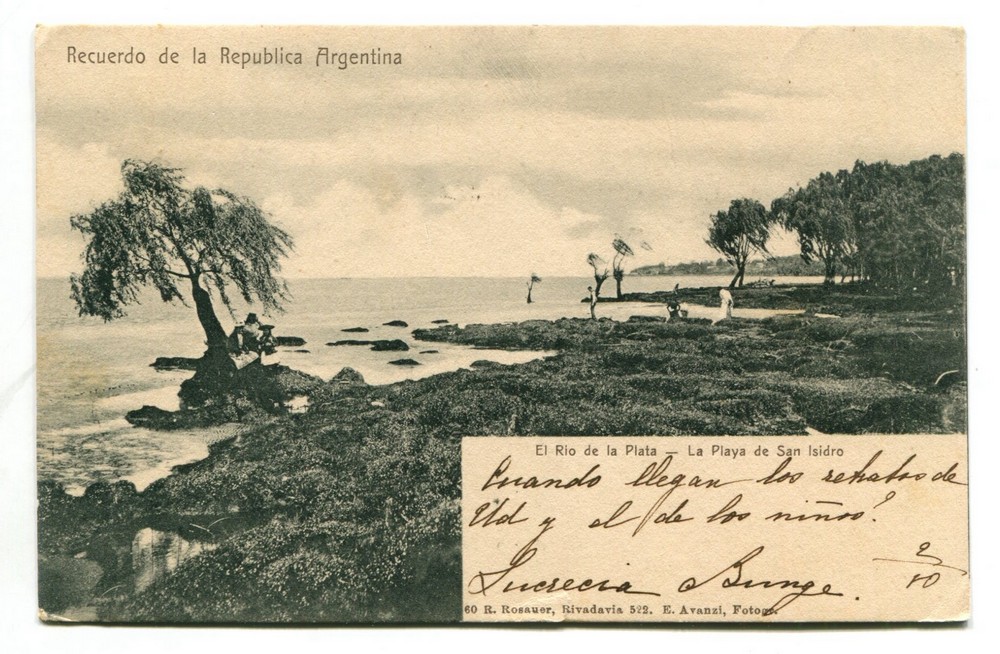 Recuerdo de la Republica Argentina
El Rio de la Plata — La Playa de San Isidro
Cuando llegan los retratos de
Ud y el de los niños?
Lucrecia Bunge.
2/10
60 R. Rosauer, Rivadavia 522. E. Avanzi, Fotogr.